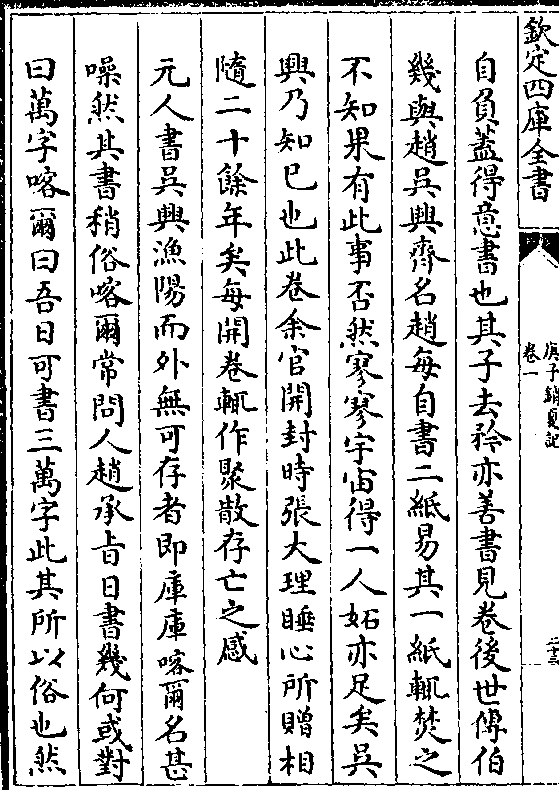 欽定四庫全書
庚子銷夏記
卷一
二十三
自負蓋得意書也其子去矜亦善書見卷後世傳伯
幾與趙吳興齊名趙每自書二紙易其一紙輒焚之
不知果有此事否然寥寥宇宙得一人妬亦足矣吳
興乃知巳也此卷余官開封時張大理睡心所贈相
隨二十餘年矣每開卷輒作聚散存亡之感
元人書吳興漁陽而外無可存者即庫庫喀爾名甚
噪然其書稍俗喀爾常問人趙承㫖日書幾何或對
曰萬字喀爾曰吾日可書三萬字此其所以俗也然